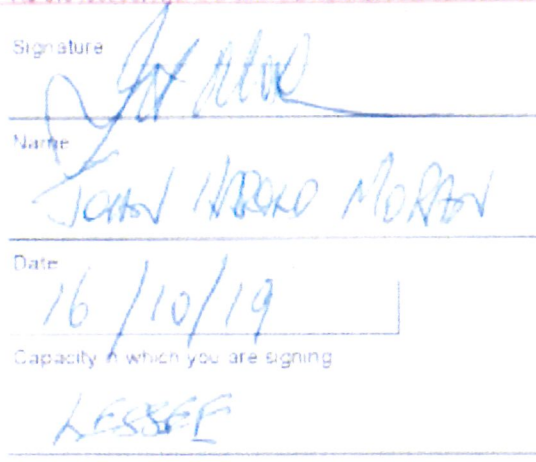 Signature
Name
JOHN HAROLD MORAN
Date
16/10/19
Capacity in which you are signing
LESSEE